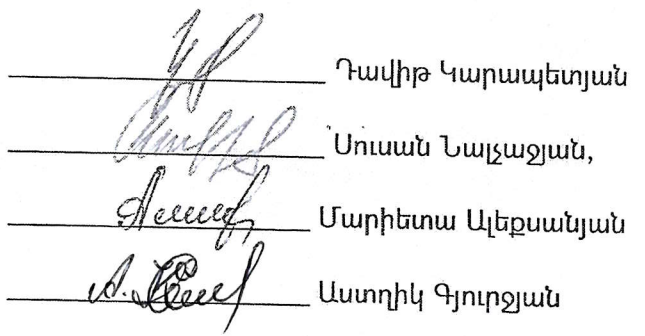 Դավիթ Կարապետյան
Սուսան Նալչաջյան,
Մարիետա Ալեքսանյան
Աստղիկ Գյուրջյան